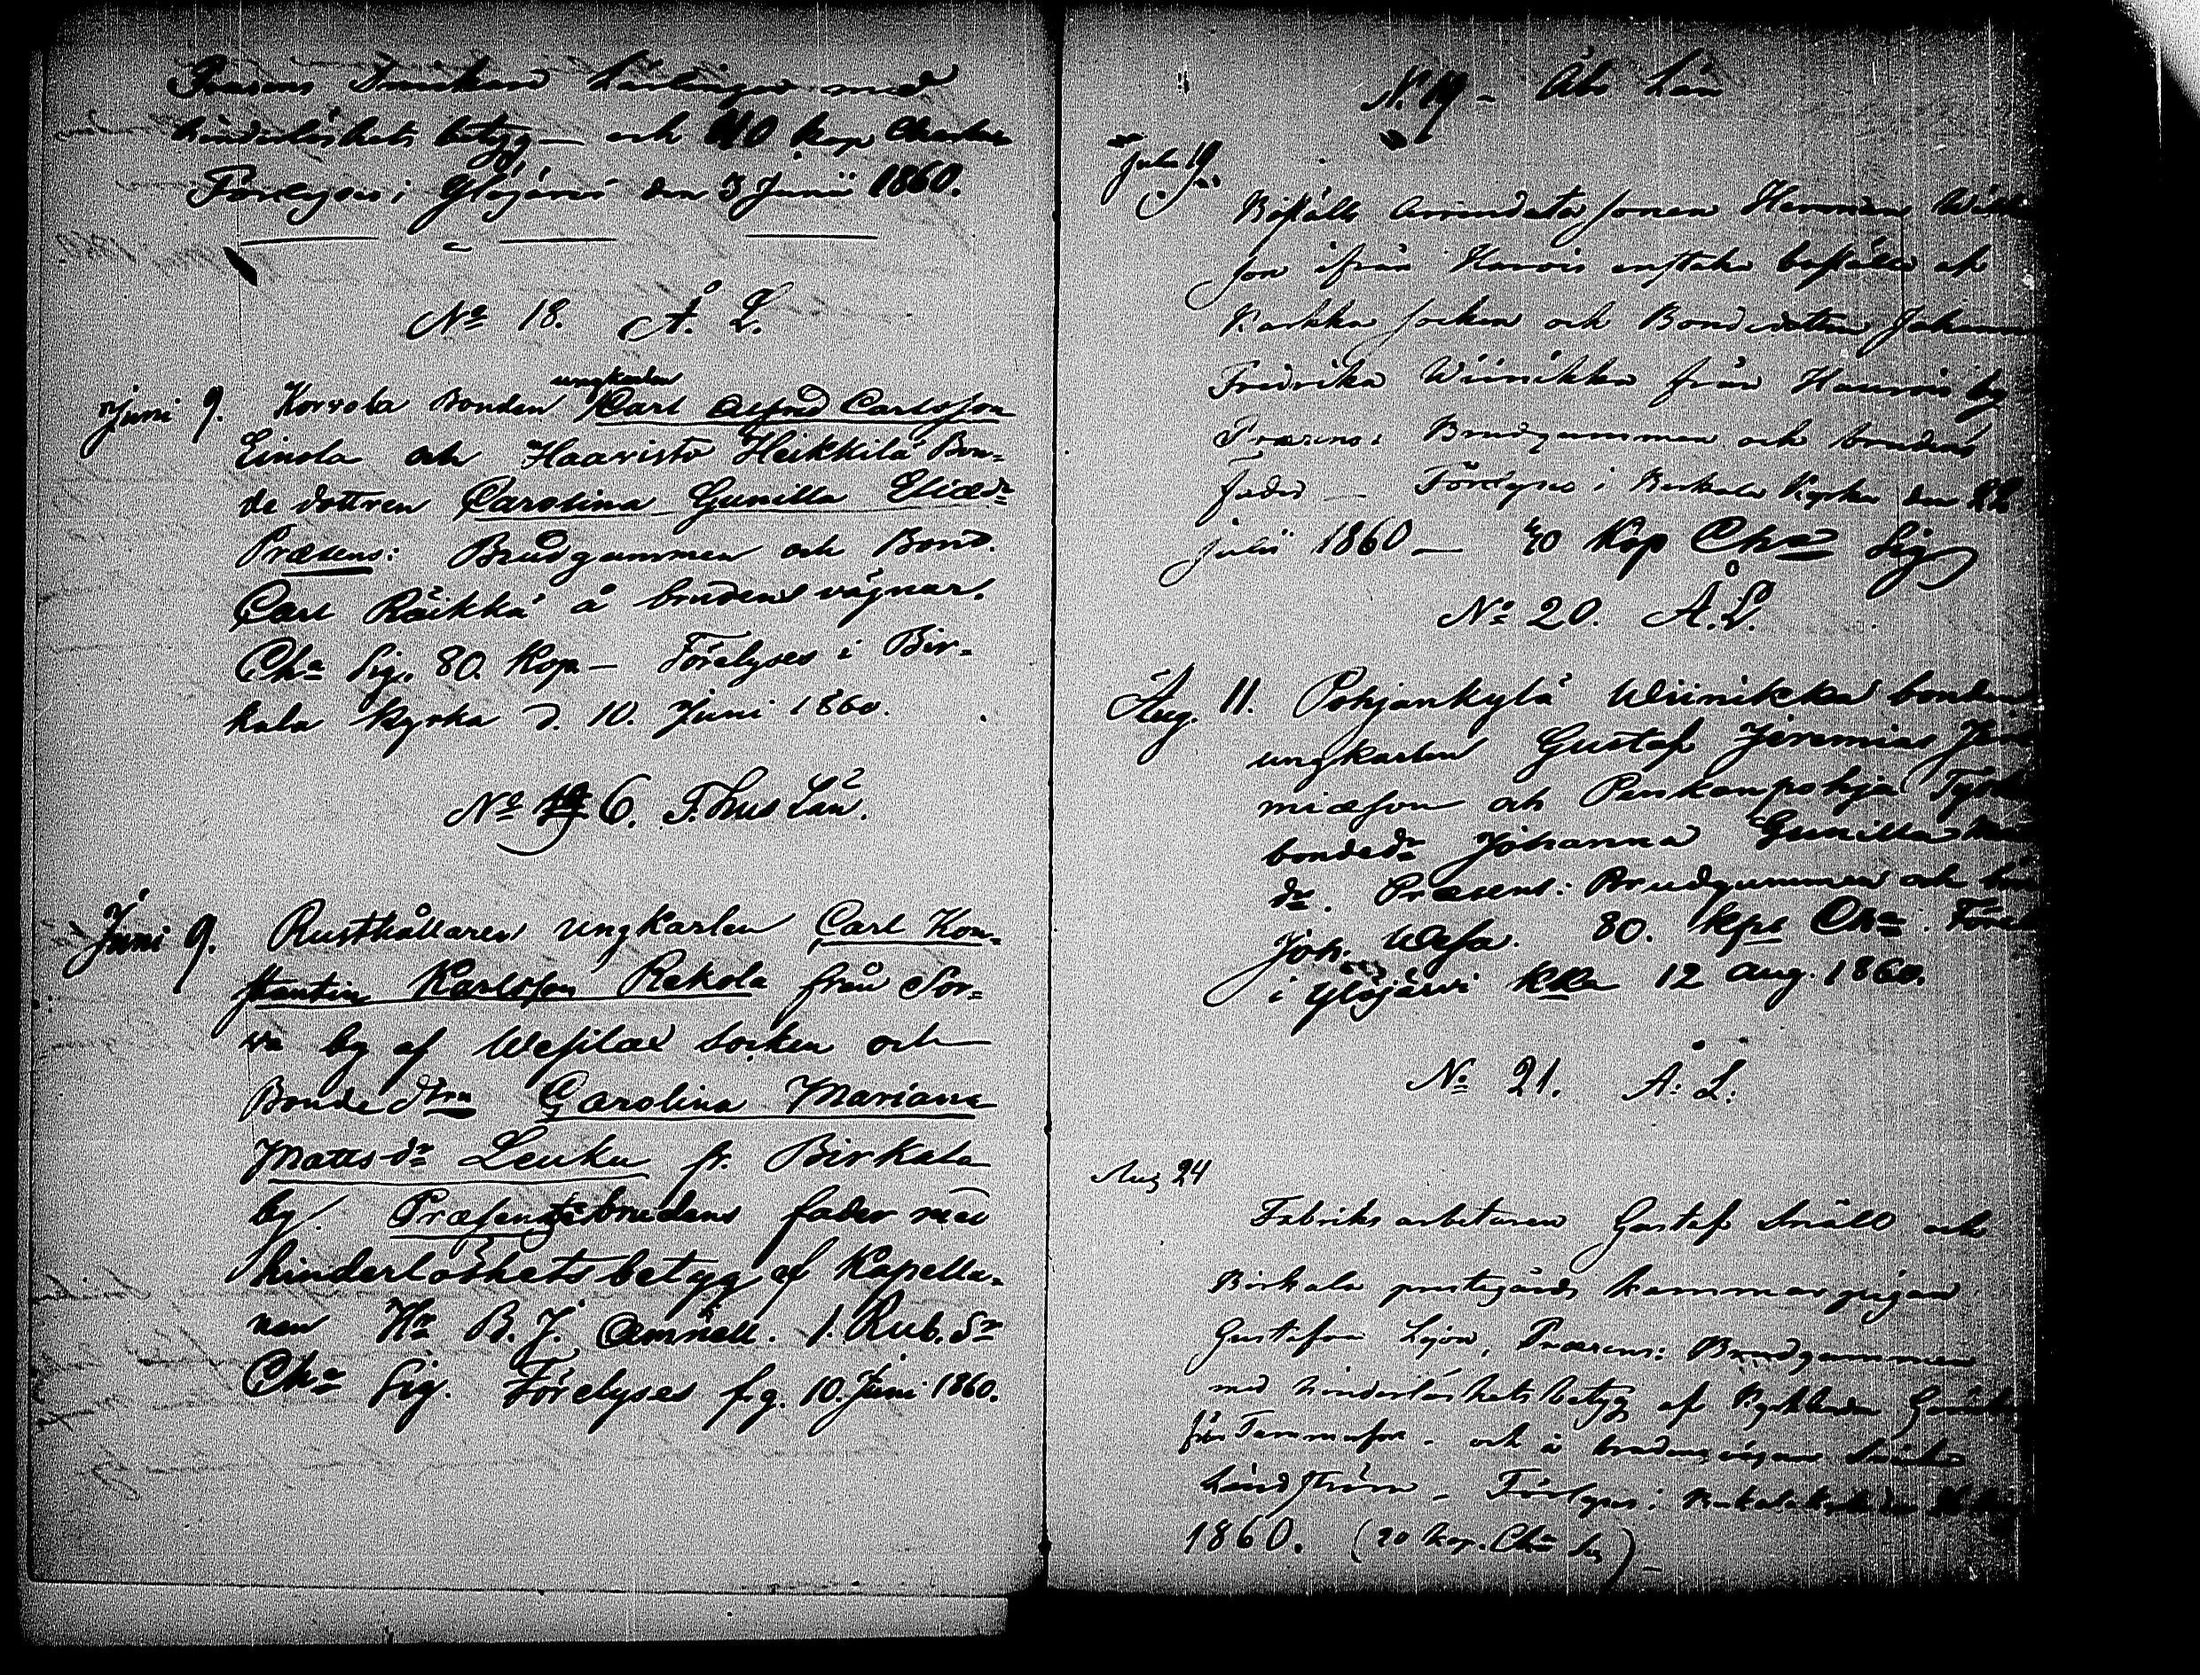 med
hinderlöshets betyg — och 40 kop Charta
Förelyses i Ylöjärvi den 3 Junii 1860.
No 18. Å. L.
Juni 9. Korvola bonden ungkarlen Carl Alfred Carlsson
Einola och Haavisto Heikkilä Bon=
de dottren Carolina Gunilla Eliædr
Præsens: Brudgummen och Bond.
Carl Räikkä å brudens vägnar.
Cha Sig. 80. Kop — Förelyses i Bir=
kala kyrka d. 10. Juni 1860.
No 6. T.hus Län.
Juni 9. Rusthållaren ungkarlen Carl Kon=
stantin Karlsson Rekola från Sor=
va by af Wesilax Socken och
Bonde dtrn Carolina Mariana
Mattsdr Leuku fr. Birkala
by. Præsens brudens fader med
hinderlöshets betyg af Kapella=
nen Hr B. J. Amnell. 1. Rub. Sr
Cha Sig. Förelyses f.g. 10. Juni 1860.
No 19 - Åbo Län
Julii 19.
Arrendatorsonen Herman
son ifrån enstaka af
Karkku Socken och Bondedottren Johanna
Fredrika Wiinikka från by
Præsens: Brudgummen och brudens
fader — Förelyses i Birkala Kyrka den 22
Julii 1860 — 40 Kop Cha Sig
No 20. Å. L.
Aug. 11. Pohjankylä Wiinikka bonden
ungkarlen Gustaf Jeremias Jere
miæson och Penkanpohja
bondedr Johanna Gunilla
dr. Præsens: Brudgummen och
Joh. Wesa. 80. kps Cha.
i Ylöjärvi kka 12 Aug. 1860.
No 21. Å. L.
Aug 24
Fabriks arbetaren Gustaf Snäll och
Birkala prestgårds kammarpigan
Gustafva Præsens: Brudgummen
med hinderlöshets betyg af Kyrkoherden
från Tammerfors - och å brudens vägnar
Lindström - Förelyses i Birkala
1860. (20 kop. Cha Sig) —